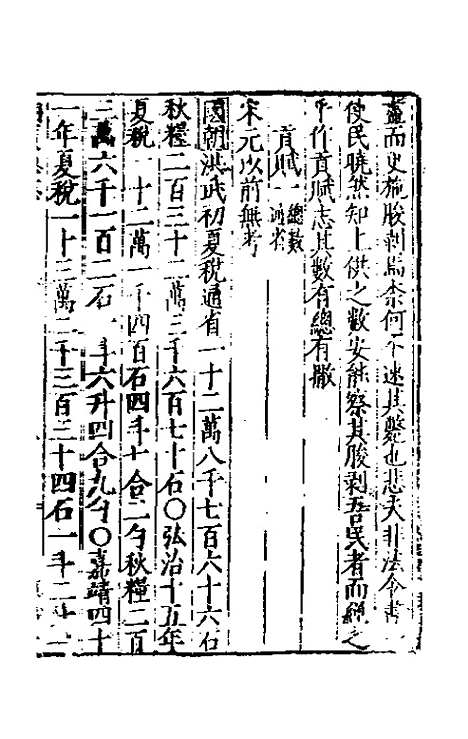 蠹而吏施朘剥焉柰何不速其斃也悲夫非法令書
使民曉然知上供之數安能察其朘剥吾民者而䋲之
乎作貢賦志其數有總有撒
貢賦一 總數 通省
宋元以前無考
國朝洪武初夏税通省一十二萬八千七百六十六石
秋糧二百三十二萬三千六百七十石〇弘治十五年
夏税一十二萬一千四百石四斗七合二勺秋糧二百
三萬六千一百二石一斗六升四合九勺〇嘉靖四十
一年夏税一十三萬二千三百三十四石一斗二升